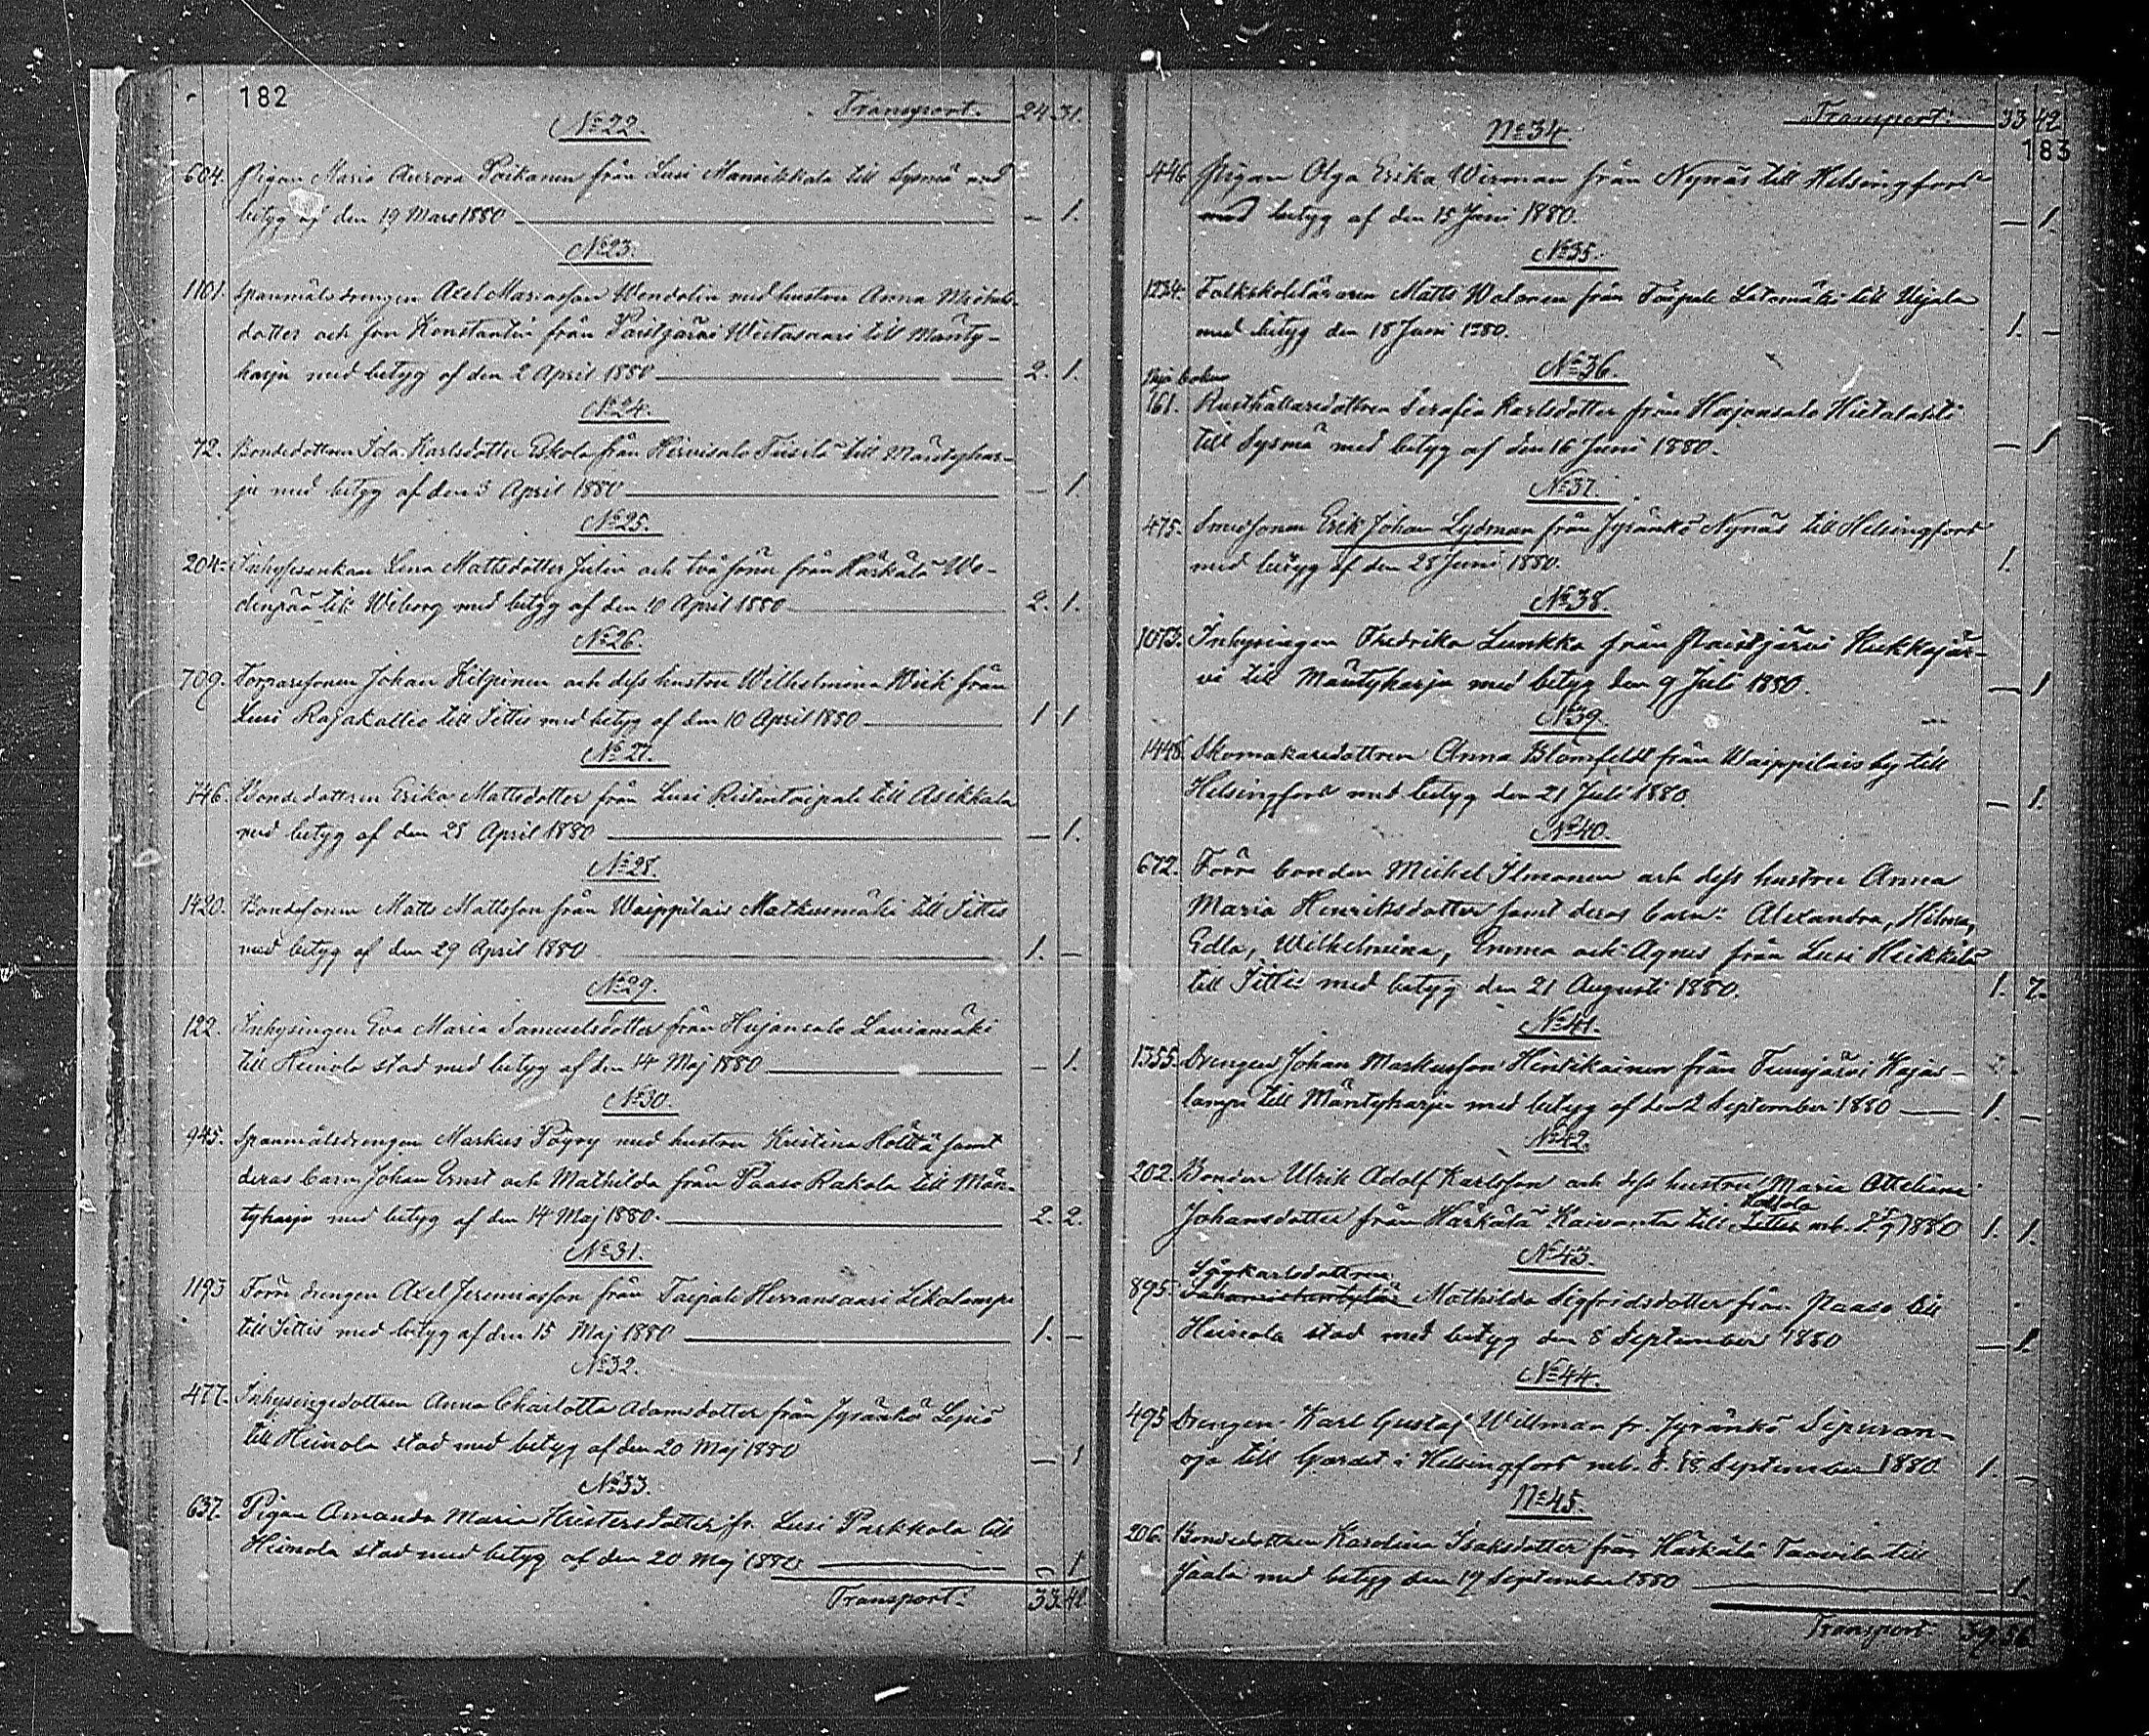 182
Transport. 24 31.
No 22.
604. Pigan Maria Aurora Poikanen från Lusi Mansikkala till Sysmä med
betyg af den 19 Mars 1880 — 1.
No 23.
1101. Spanmålsdrengen Axel Mariasson Wendelin med hustru Anna Michels-
dotter och son Konstantin från Paistjärvi till Mänty-
harju med betyg af den 2 April 1880 2. 1.
No 24.
72. Bondedottren Ida Karlsdotter Eskola från Hirvisalo till Mäntyhar-
ju med betyg af den 3 April 1880 — 1.
No 25.
204. Inhysesenkan Lena Mattsdotter Julin och två söner från Härkälä Wo-
denpää till Wiborg med betyg af den 10 April 1880 2. 1.
No 26.
709. Torparesonen Johan Kilpinen och dess hustru Wilhelmina Weik från
Lusi Rajakallio till Jittis med betyg af den 10 April 1880 1 1
No 27.
746. Bondedottren Erika Mattsdotter från Lusi Ristintaipale till Asikkala
med betyg af den 28 April 1880 — 1.
No 28.
1420. Bondesonen Matts Mattsson från Waippilais Matkusmäki till Jittis
med betyg af den 29 April 1880 1. —
No 29.
122. Inhysingen Eva Maria Samuelsdotter från Hujansalo Lauriamäki
till Heinola stad med betyg af den 14 Maj 1880 — 1.
No 30.
945. Spanmålsdrengen Markus Pöyry med hustru Kristina Hölttä samt
deras barn Johan Ernst och Mathilda från Paaso Rakola till Män-
tyharju med betyg af den 14 Maj 1880. 2. 2.
No 31.
1193 Förre drengen Axel Jeremiasson från Taipale Herransaari Likolampi
till Jittis med betyg af den 15 Maj 1880 1. —
No 32.
477. Inhysingedottren Anna Charlotta Adamsdotter från Jyränkö
till Heinola stad med betyg af den 20 Maj 1880 — 1
No 33.
637. Pigan Amanda Maria Kristersdotter fr. Lusi Parkkola till
Heinola stad med betyg af den 20 Maj 1880 — 1
Transport. 33. 42.
183
Transport: 33 42
No 34.
446 Pigan Olga Erika Wirman från Nynäs till Helsingfors
med betyg af den 15 Juni 1880. — 1.
No 35.
1234. Folkskoleläraren Matts Walonen från Taipale Latomäki till Urjala
med betyg den 18 Juni 1880. 1. —
No 36.
Nya boken
161. Rusthållaredottren Serafia Karlsdotter från Hujansalo Hietalahti
till Sysmä med betyg af den 16 Juni 1880. — 1
No 37.
475. Smedsonen Erik Johan Lydman från Jyränkö Nynäs till Helsingfors
med betyg af den 28 Juni 1880. 1.
No 38.
1073. Inhysingen Fredrika Lunkka från Paistjärvi Kukkajär-
vi till Mäntyharju med betyg den 9 Juli 1880. — 1
No 39.
1448. Skomakaredottren Anna Blomfeldt från Waippilais by till
Helsingfors med betyg den 21 Juli 1880. — 1.
No 40.
672. Förre bonden Michel Ilmonen och dess hustru Anna
Maria Henriksdotter samt deras barn: Alexandra, Hilma,
Edla, Wilhelmina, Emma och Agnes från Lusi Heikkilä
till Jittis med betyg den 21 Augusti 1880. 1. 7.
No 41.
1355. Drengen Johan Markusson Hintikainen från Tuusjärvi Hajas-
lampi till Mäntyharju med betyg af den 2 September 1880 — 1. —
No 42.
202. Bonden Ulrik Adolf Karlsson och dess hustru Maria Otteliana
Hollola
Johansdotter från Härkälä Kaivanto till Jittis mb. 1880 1. 1.
No 43.
Spökarlsdottren
895. Mathilda Sigfridsdotter från Paaso till
Heinola stad med betyg den 8 September 1880 — 1
No 44.
495 Drengen Karl Gustaf Willman fr. Jyränkö Sepuran-
oja till Gardet i Helsingfors mb. d. 18 September 1880. 1. —
No 45.
206. Bondedottren Karolina Isaksdotter från Härkälä Taavila till
Jaala med betyg den 19 September 1880 — 1.
Transport 39. 56